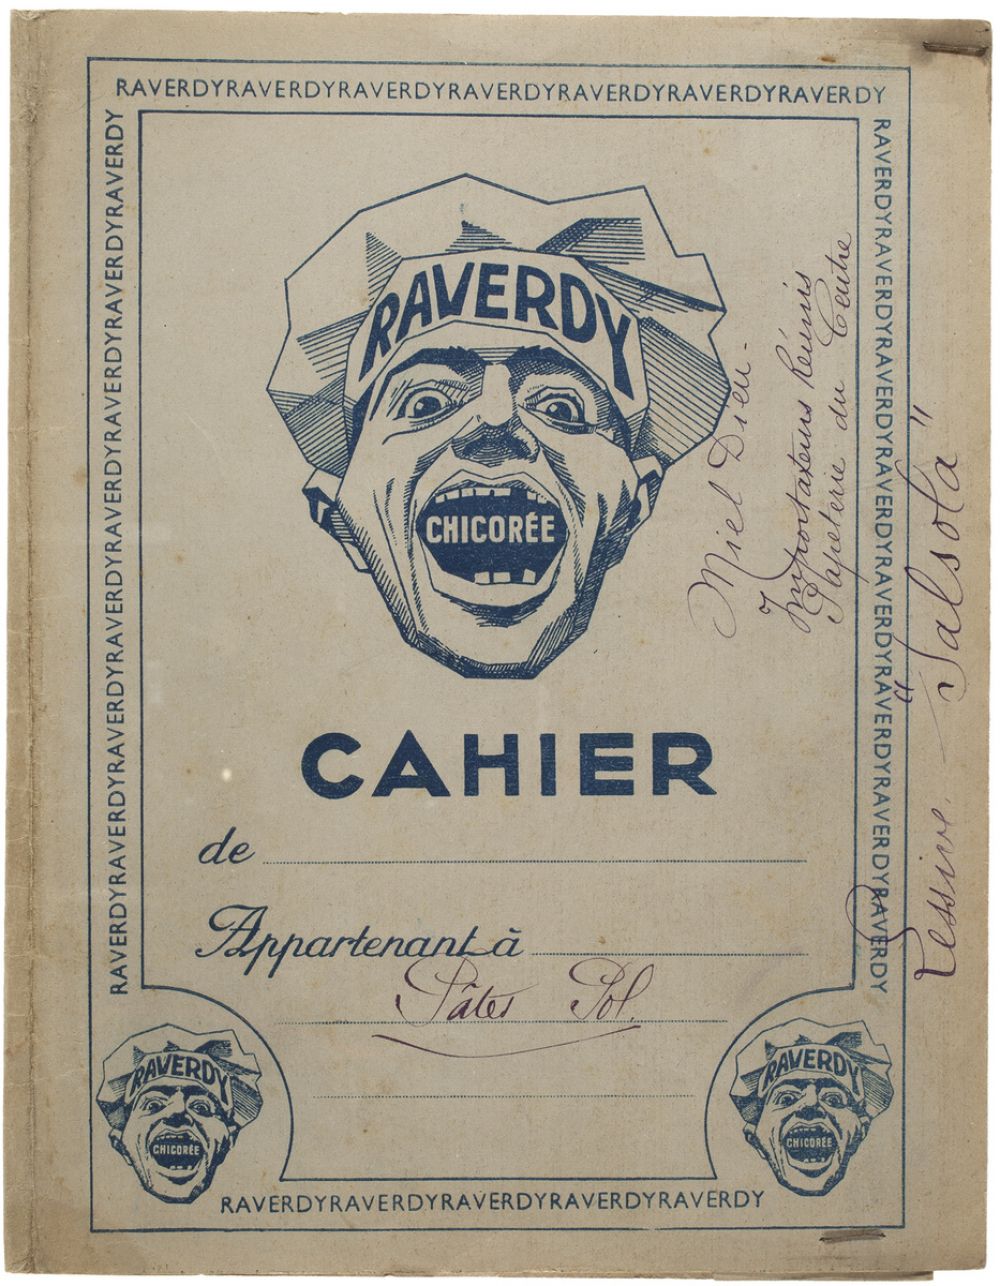 RAVERDYRAVERDYRAVERDYRAVERDYRAVERDYRAVERDYRAVERDY
RAVERDYRAVERDYRAVERDYRAVERDYRAVERDYRAVERDYRAVERDYRAVERDY
RAVERDYRAVERDYRAVERDYRAVERDYRAVERDYRAVERDYRAVERDYRAVERDY
RAVERDY
CHICORÉE
Miel Dieu.
Importateurs Réunis
Papeterie du Centre
Lessive. "Salsola"
CAHIER
de
Appartenant à
Pâtes Pol.
RAVERDY
CHICORÉE
RAVERDY
CHICORÉE
RAVERDYRAVERDYRAVERDYRAVERDYRAVERDY